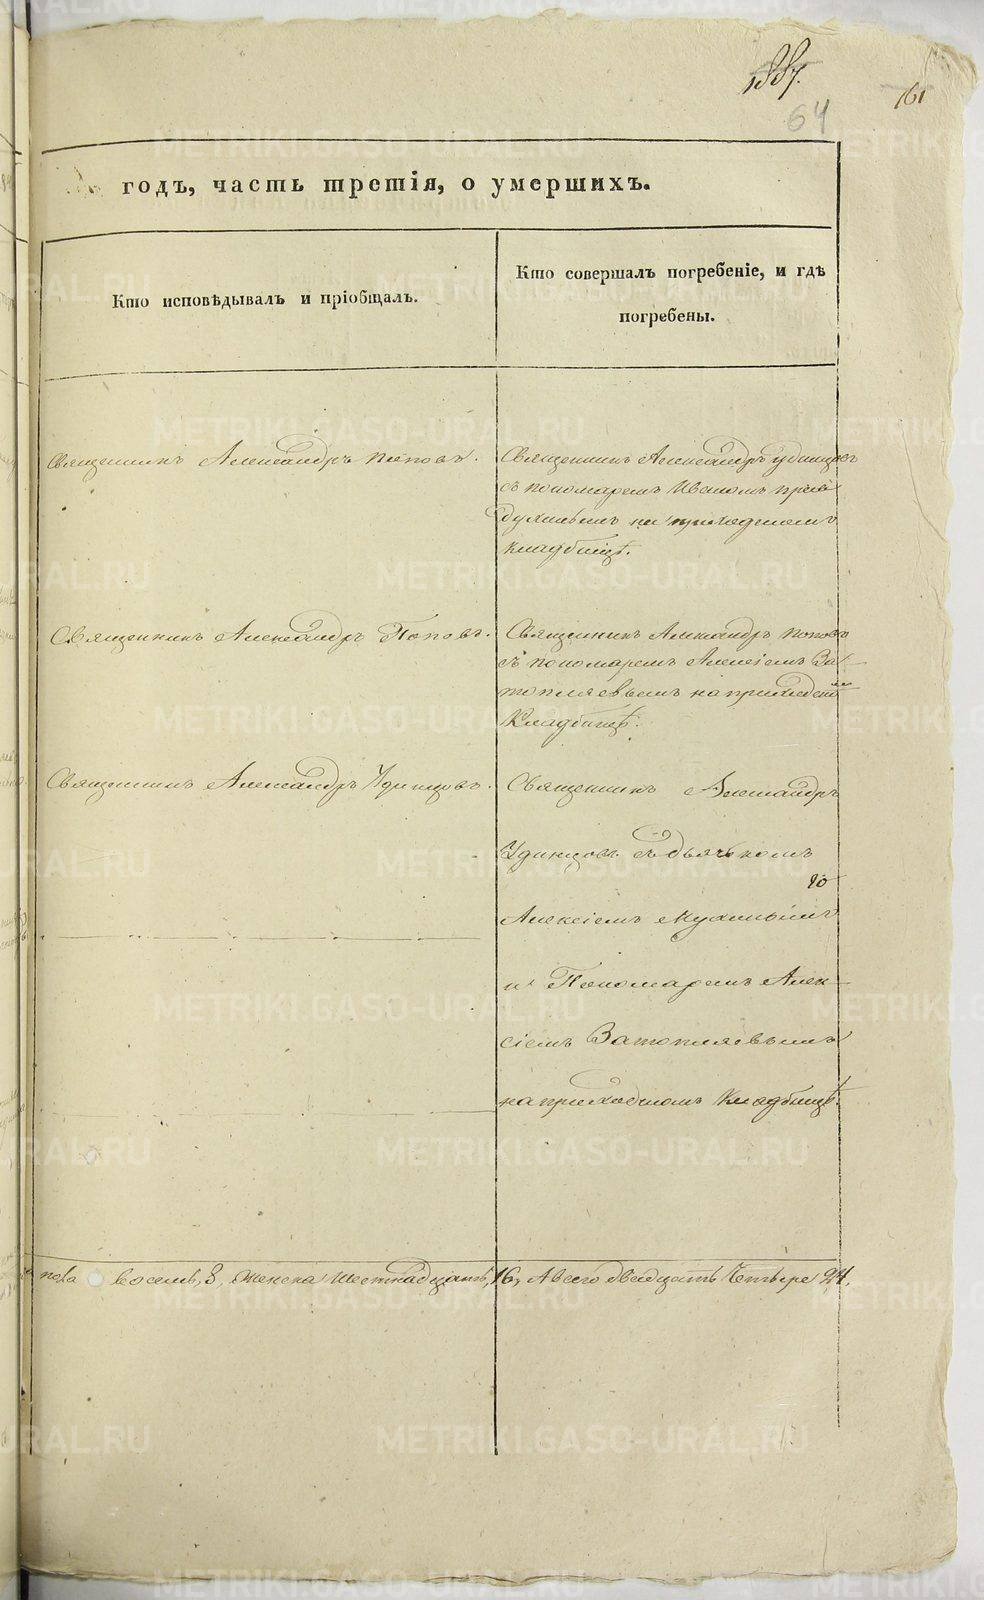 161
64
годъ, часть третія, о умершихъ.
Кто исповѣдывалъ и пріобщалъ.
Кто совершалъ погребеніе, и гдѣ
погребены.
Священникъ Александръ Поповъ.
Священникъ Александръ Удинцовъ
съ пономаремъ Иваномъ
на приходскомъ
кладбищѣ.
Священникъ Александръ Поповъ.
Священникъ Александръ Поповъ
съ пономаремъ Алексіемъ За-
топляевымъ на приходскомъ
Кладбищѣ.
Священникъ Александръ Удинцовъ.
Священникъ Александръ
Удинцовъ съ дьячкомъ
Алексіемъ
и Пономаремъ Алек-
сіемъ Затопляевымъ
на приходскомъ Кладбищѣ.
пола восемь, 8, женска шестнадцать, 16, А всего двадцать четыре 24.
METRIKI.GASO-URAL.RU